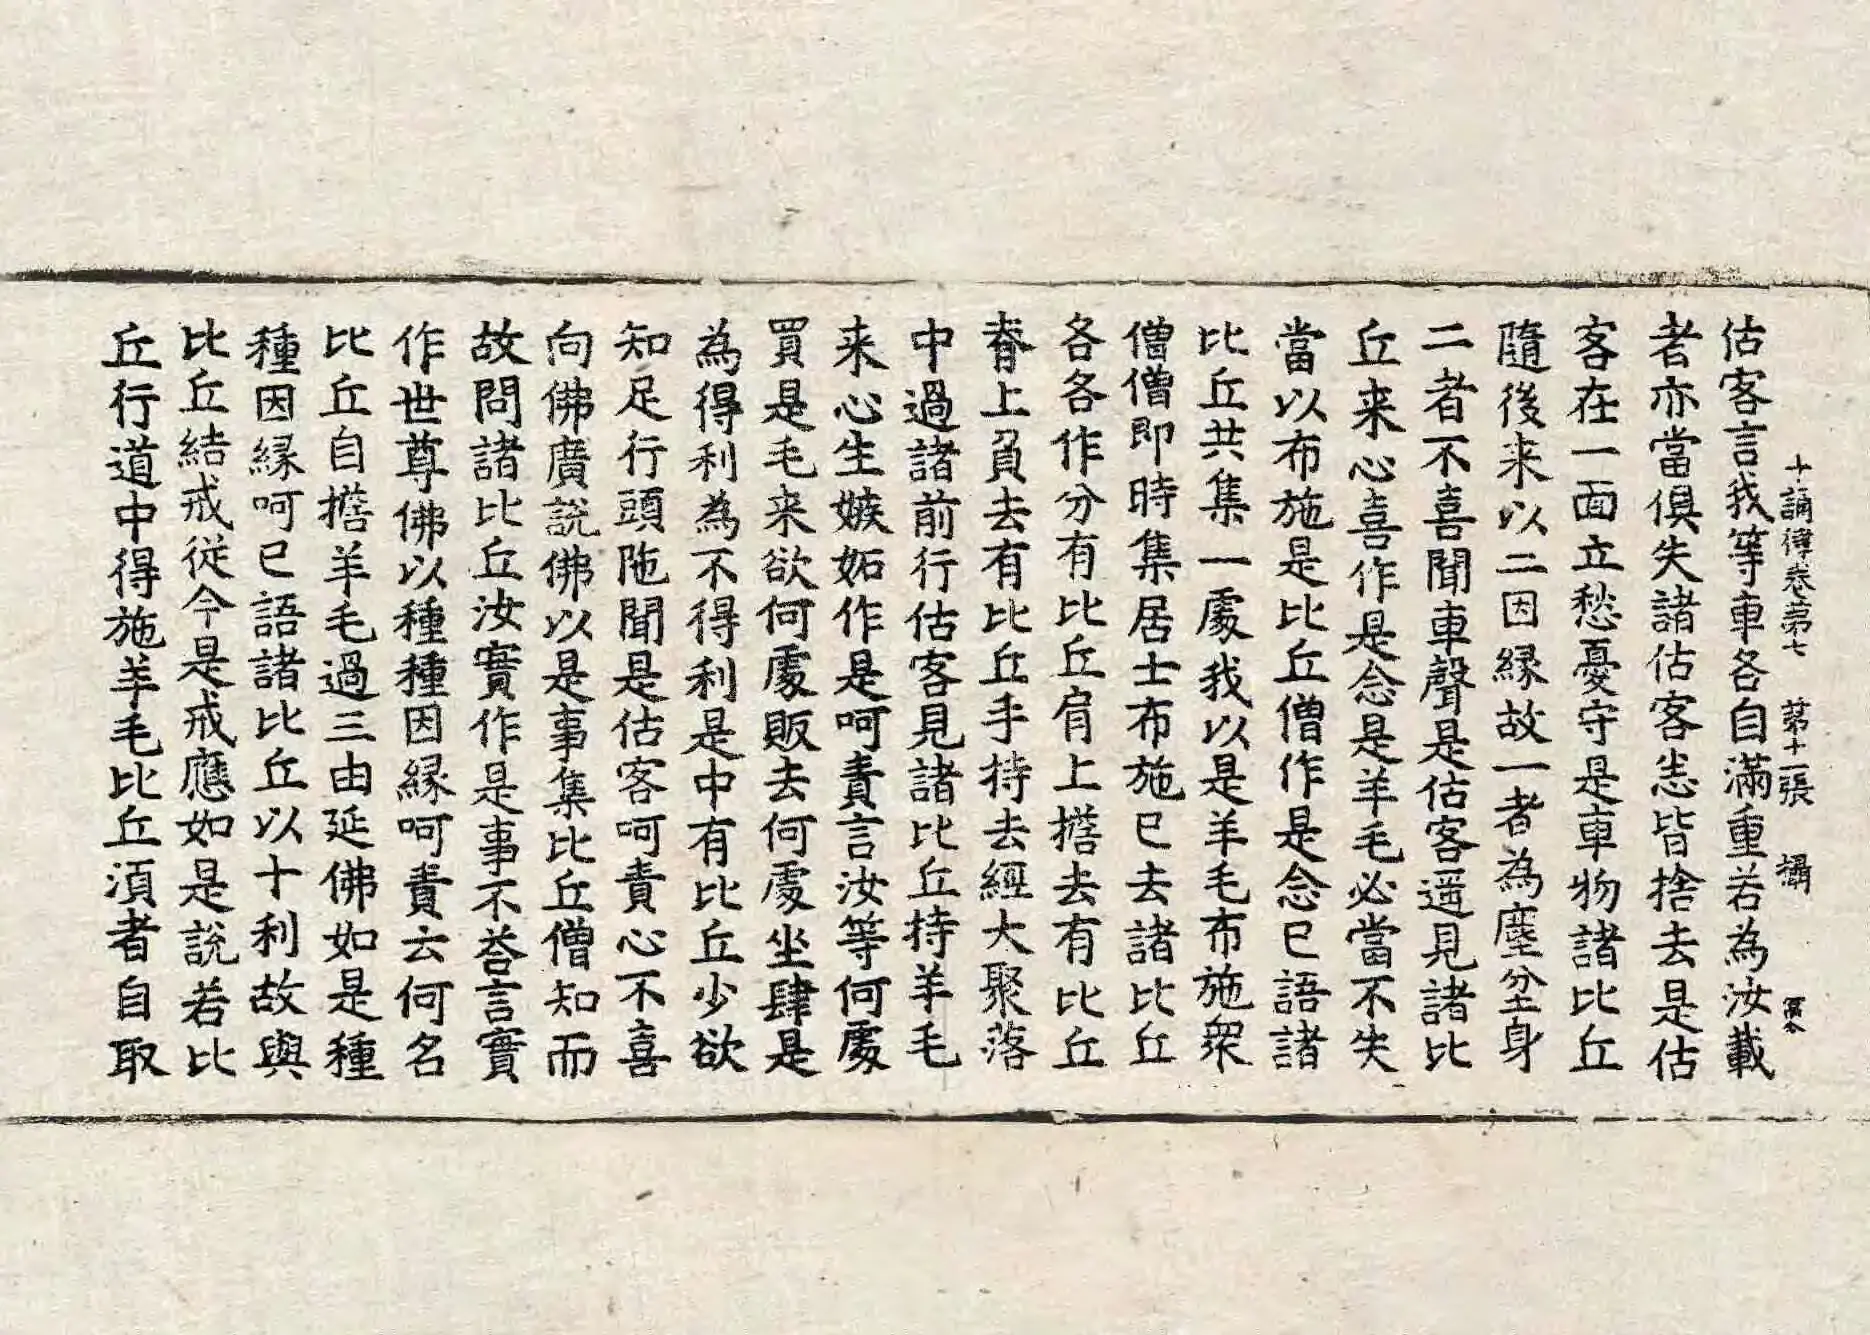 十誦律卷第七 第十一張 攝
估客言我等車各自滿重若為汝載
者亦當俱失諸估客恚皆捨去是估
客在一面立愁憂守是車物諸比丘
隨後来以二因緣故一者為塵坌身
二者不喜聞車聲是估客遥見諸比
丘来心喜作是念是羊毛必當不失
當以布施是比丘僧作是念已語諸
比丘共集一處我以是羊毛布施衆
僧僧即時集居士布施已去諸比丘
各各作分有比丘肩上擔去有比丘
脊上負去有比丘手持去經大聚落
中過諸前行估客見諸比丘持羊毛
来心生嫉妬作是呵責言汝等何處
買是毛来欲何處販去何處坐肆是
為得利為不得利是中有比丘少欲
知足行頭陁聞是估客呵責心不喜
向佛廣說佛以是事集比丘僧知而
故問諸比丘汝實作是事不荅言實
作世尊佛以種種因緣呵責云何名
比丘自擔羊毛過三由延佛如是種
種因緣呵已語諸比丘以十利故與
比丘結戒從今是戒應如是說若比
丘行道中得施羊毛比丘湏者自取